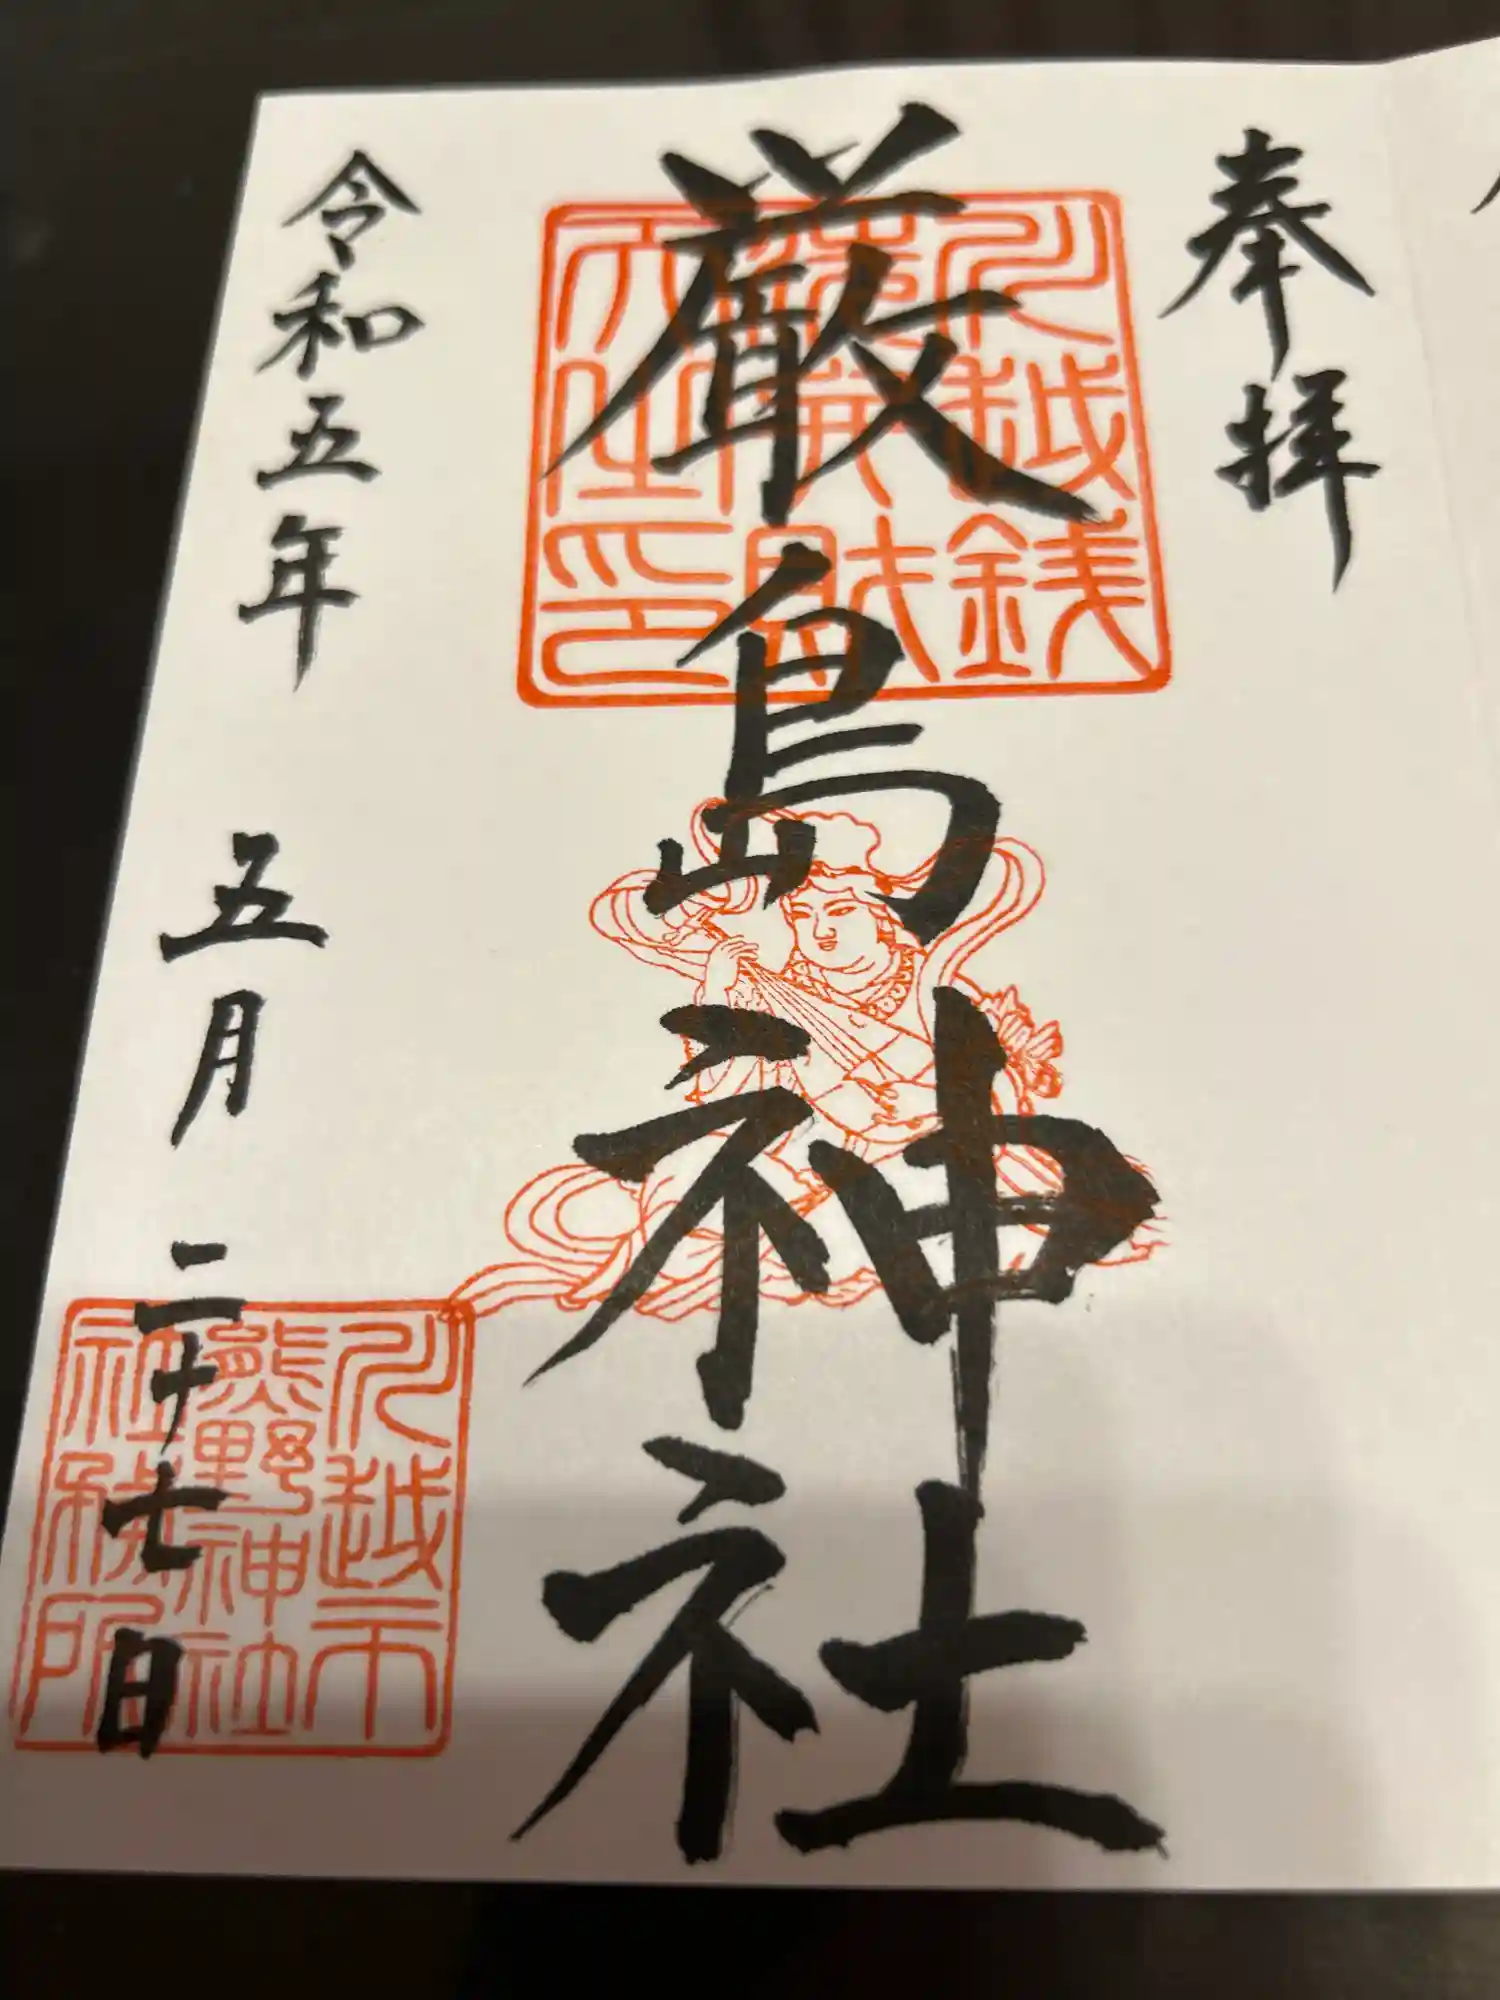 奉拝
厳島神社
川越銭洗弁財天社印
令和五年 五月 二十七日
川越市熊野神社社務所